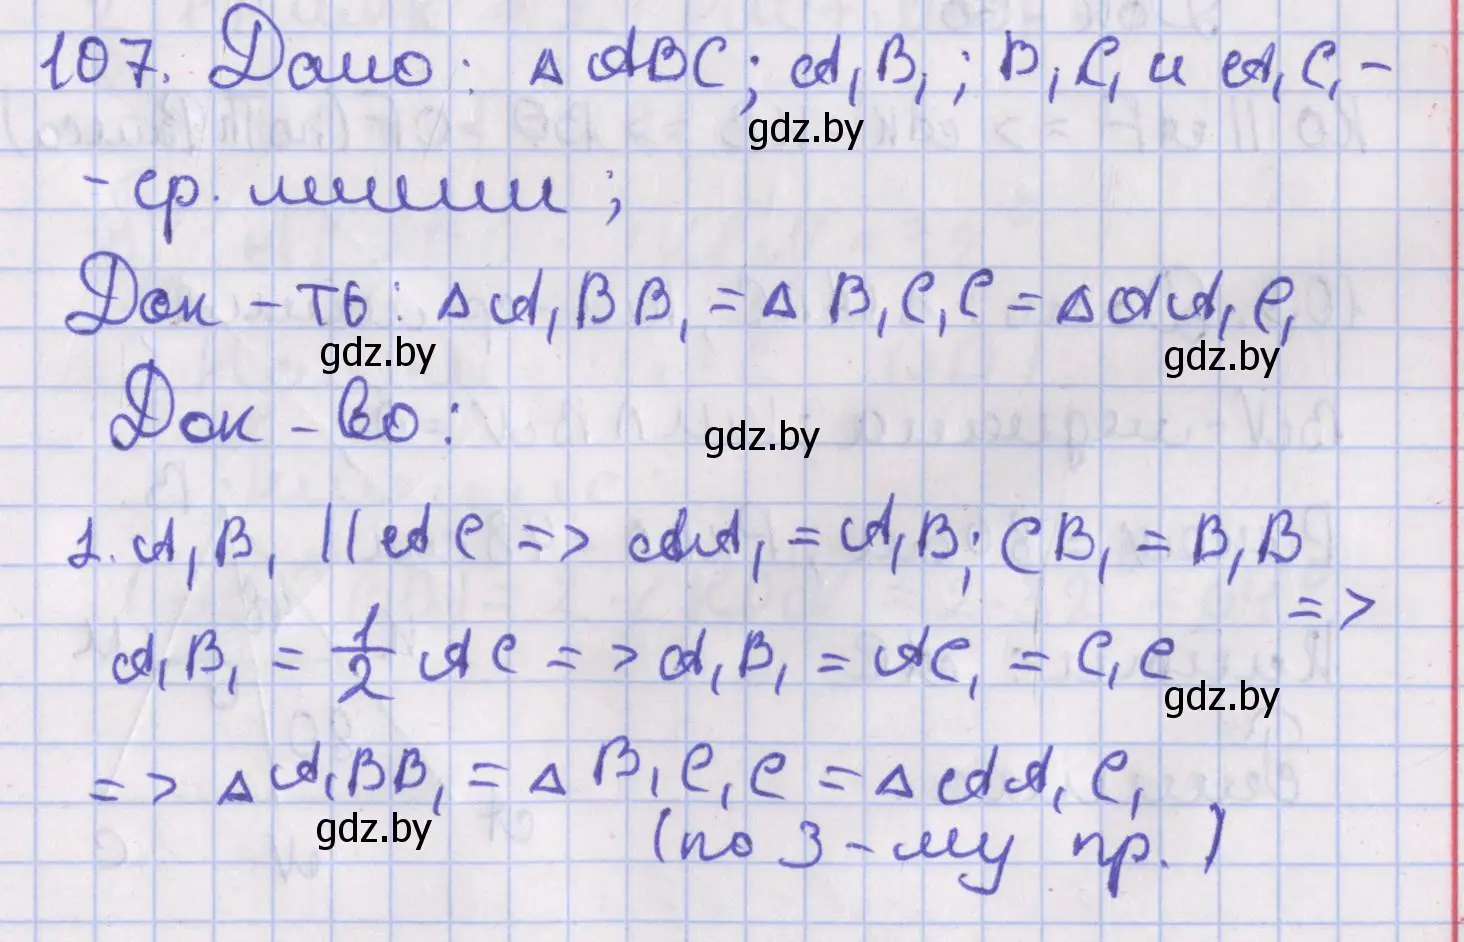 107. Дано: △ ABC; A₁B₁; B₁C₁ и A₁C₁ -
gdz.by
- ср. линии;
Док-ть: △ A₁BB₁ = △ B₁C₁C = △ AA₁C₁
gdz.by gdz.by
Док-во:
gdz.by
1. A₁B₁ || AC => AA₁ = A₁B; CB₁ = B₁B
=>
A₁B₁ = 1/2 AC => A₁B₁ = AC₁ = C₁C
gdz.by
=> △ A₁BB₁ = △ B₁C₁C = △ AA₁C₁
gdz.by
(по 3-му пр.)